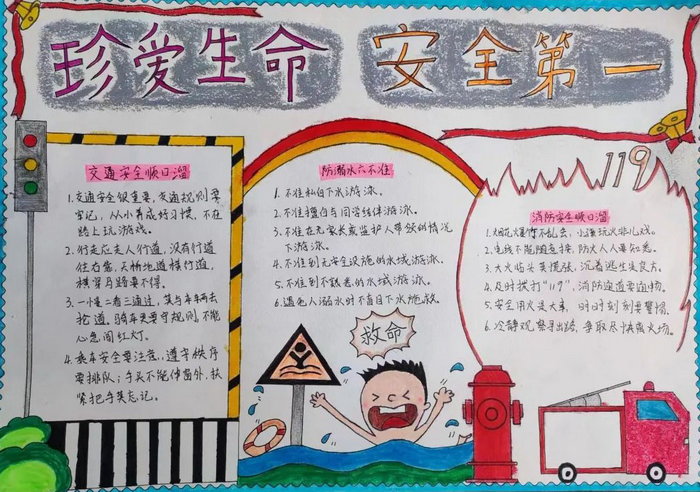 珍爱生命 安全第一
交通安全顺口溜
1.交通安全很重要,交通规则要
牢记,从小养成好习惯,不在
路上玩游戏。
2.行走应走人行道,没有行道
往右靠,天桥地道横行道,
横穿马路要不得。
3.一慢二看三通过,莫与车辆去
抢道。骑车更要守规则,不能
心急闯红灯。
4.乘车安全要注意,遵守秩序
要排队;手头不能伸窗外,扶
紧把手莫忘记。
防溺水六不准
1.不准私自下水游泳。
2.不准擅自与同学结伴游泳。
3.不准在无家长或监护人带领的情况
下游泳。
4.不准到无安全设施的水域游泳。
5.不准到不熟悉的水域游泳。
6.遇他人溺水时不盲目下水施救。
救命
119
消防安全顺口溜
1.烟花爆竹不乱去,小孩玩火非儿戏。
2.电线不能随意接,防火人人要知悉。
3.大火临头莫慌张,沉着逃生是良方。
4.及时拨打"119",消防通道要通畅。
5.安全用火是大事,时时刻刻要警惕。
6.冷静观察寻出路,争取尽快离火场。